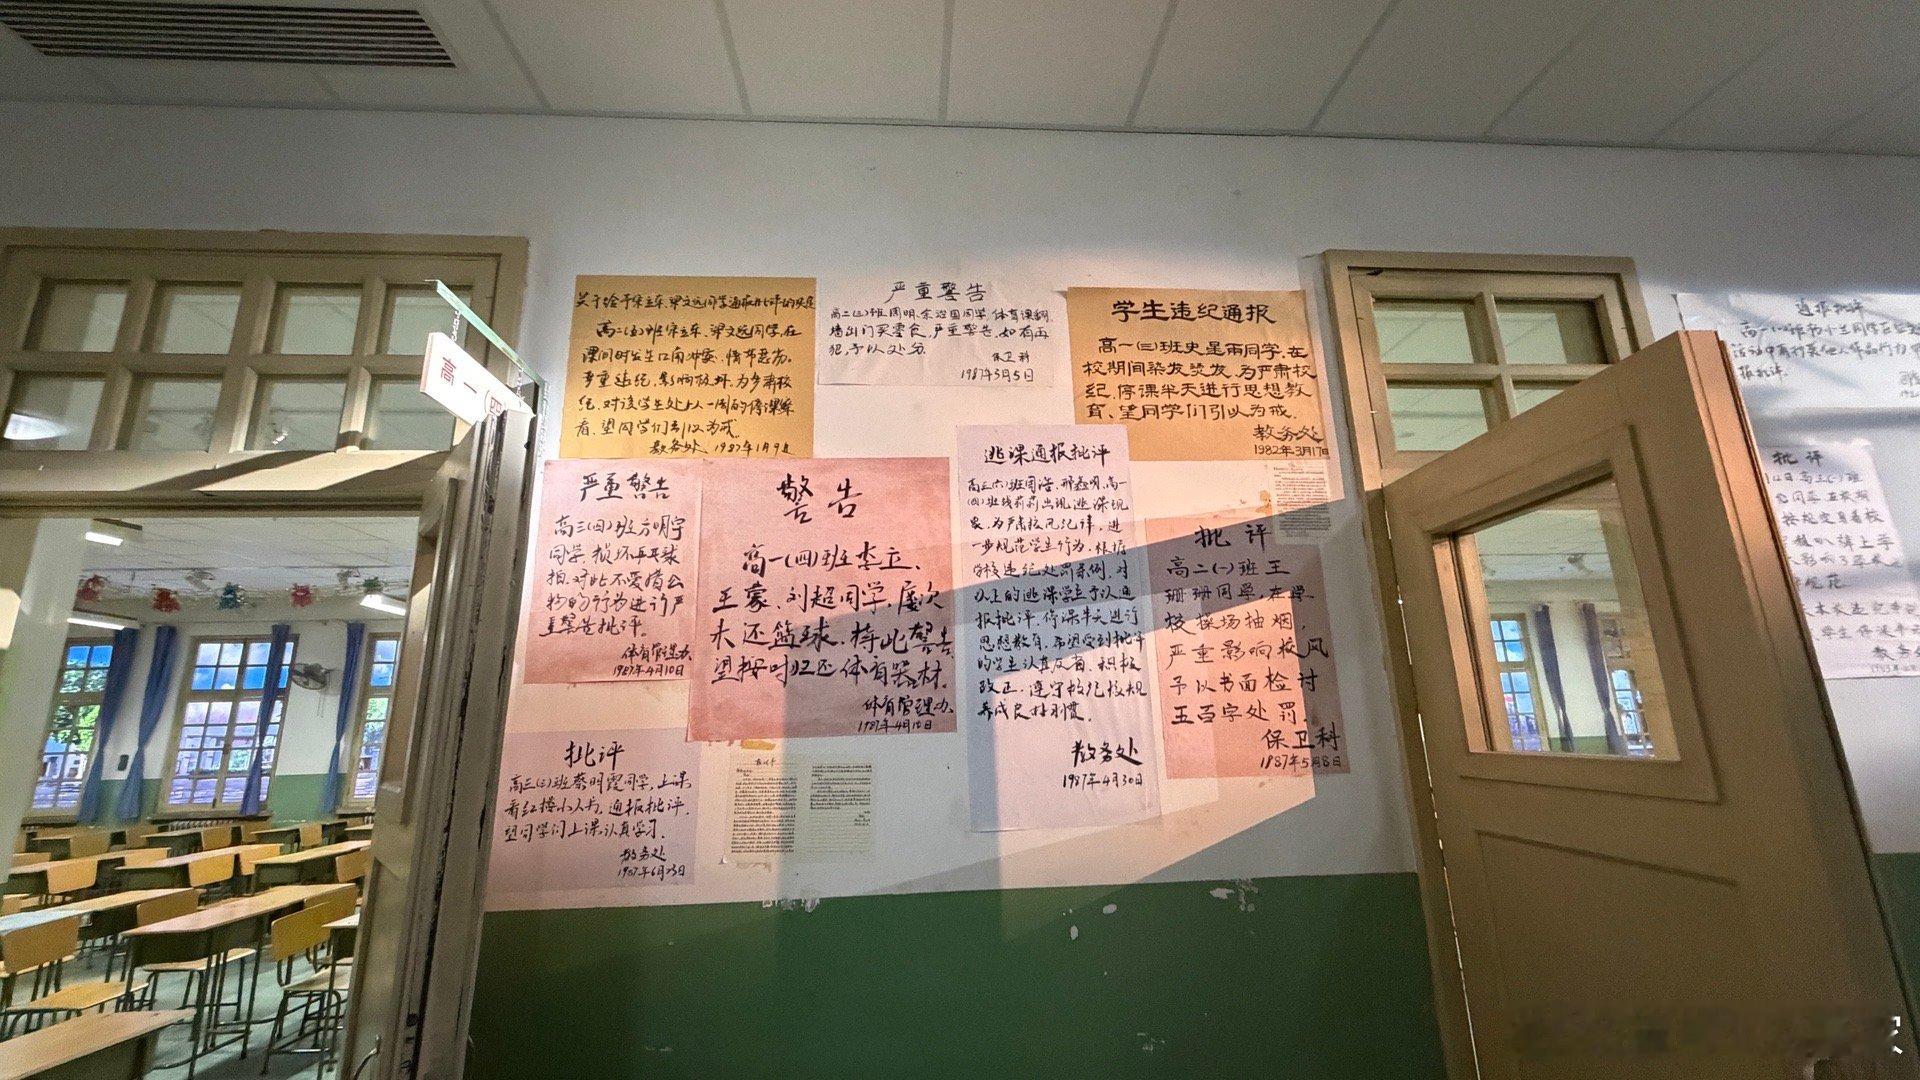 高一(四)
关于给予宋立车、梁文远同学通报批评的决定
高二(五)班宋立车、梁文远同学,在
课间时发生口角冲突,情节恶劣。
严重违纪,影响极坏,为严肃校
纪,对该学生处以一周的停课察
看,望同学们引以为戒。
教务处 1987年1月9日
严重警告
高二(三)班周明、余治国同学,体育课翻
墙出门买零食,严重警告,如有再
犯,予以处分。
保卫科
1987年3月5日
学生违纪通报
高一(三)班史是雨同学,在
校期间染发烫发,为严肃校
纪,停课半天进行思想教
育、望同学们引以为戒.
教务处
1982年3月17日
严重警告
高三(四)班方明宇
同学,损坏乒乓球
拍,对此不爱惜公
物的行为进行严
重警告批评。
体育管理办
1987年4月10日
警告
高一(四)班李立、
王蒙、刘超同学,屡次
未还篮球,特此警告
望按时归还体育器材.
体育管理办
1987年4月10日
逃课通报批评
高三(六)班周浩、邢磊明、高一
(四)班钱莉莉出现逃课现
象,为严肃校风纪律,进
一步规范学生行为,根据
学校违纪处罚条例,对
以上的逃课学生予以通
报批评,停课半天进行
思想教育,希望受到批评
的学生认真反省,积极
改正,遵守校纪校规
养成良好习惯。
教务处
1987年4月30日
批评
高二(一)班王
珊珊同学,在学
校操场抽烟,
严重影响校风
予以书面检讨
五百字处罚.
保卫科
1987年5月8日
批评
高三(三)班蔡明霞同学,上课
看红楼小人书,通报批评,
望同学们上课认真学习.
教务处
1987年6月23日
通报批评
报批评.
批评